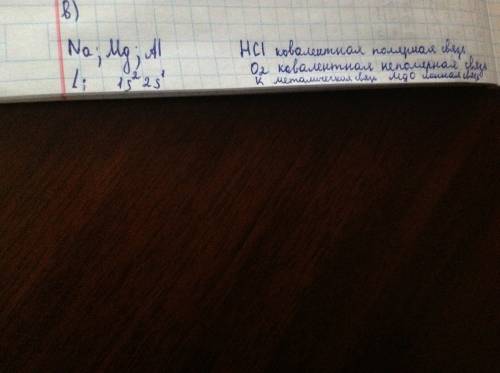 в)
Na; Mg; Al
Li 1s² 2s¹
HCl ковалентная полярная связь
O2 ковалентная неполярная связь
K металическая связь MgO ионная связь